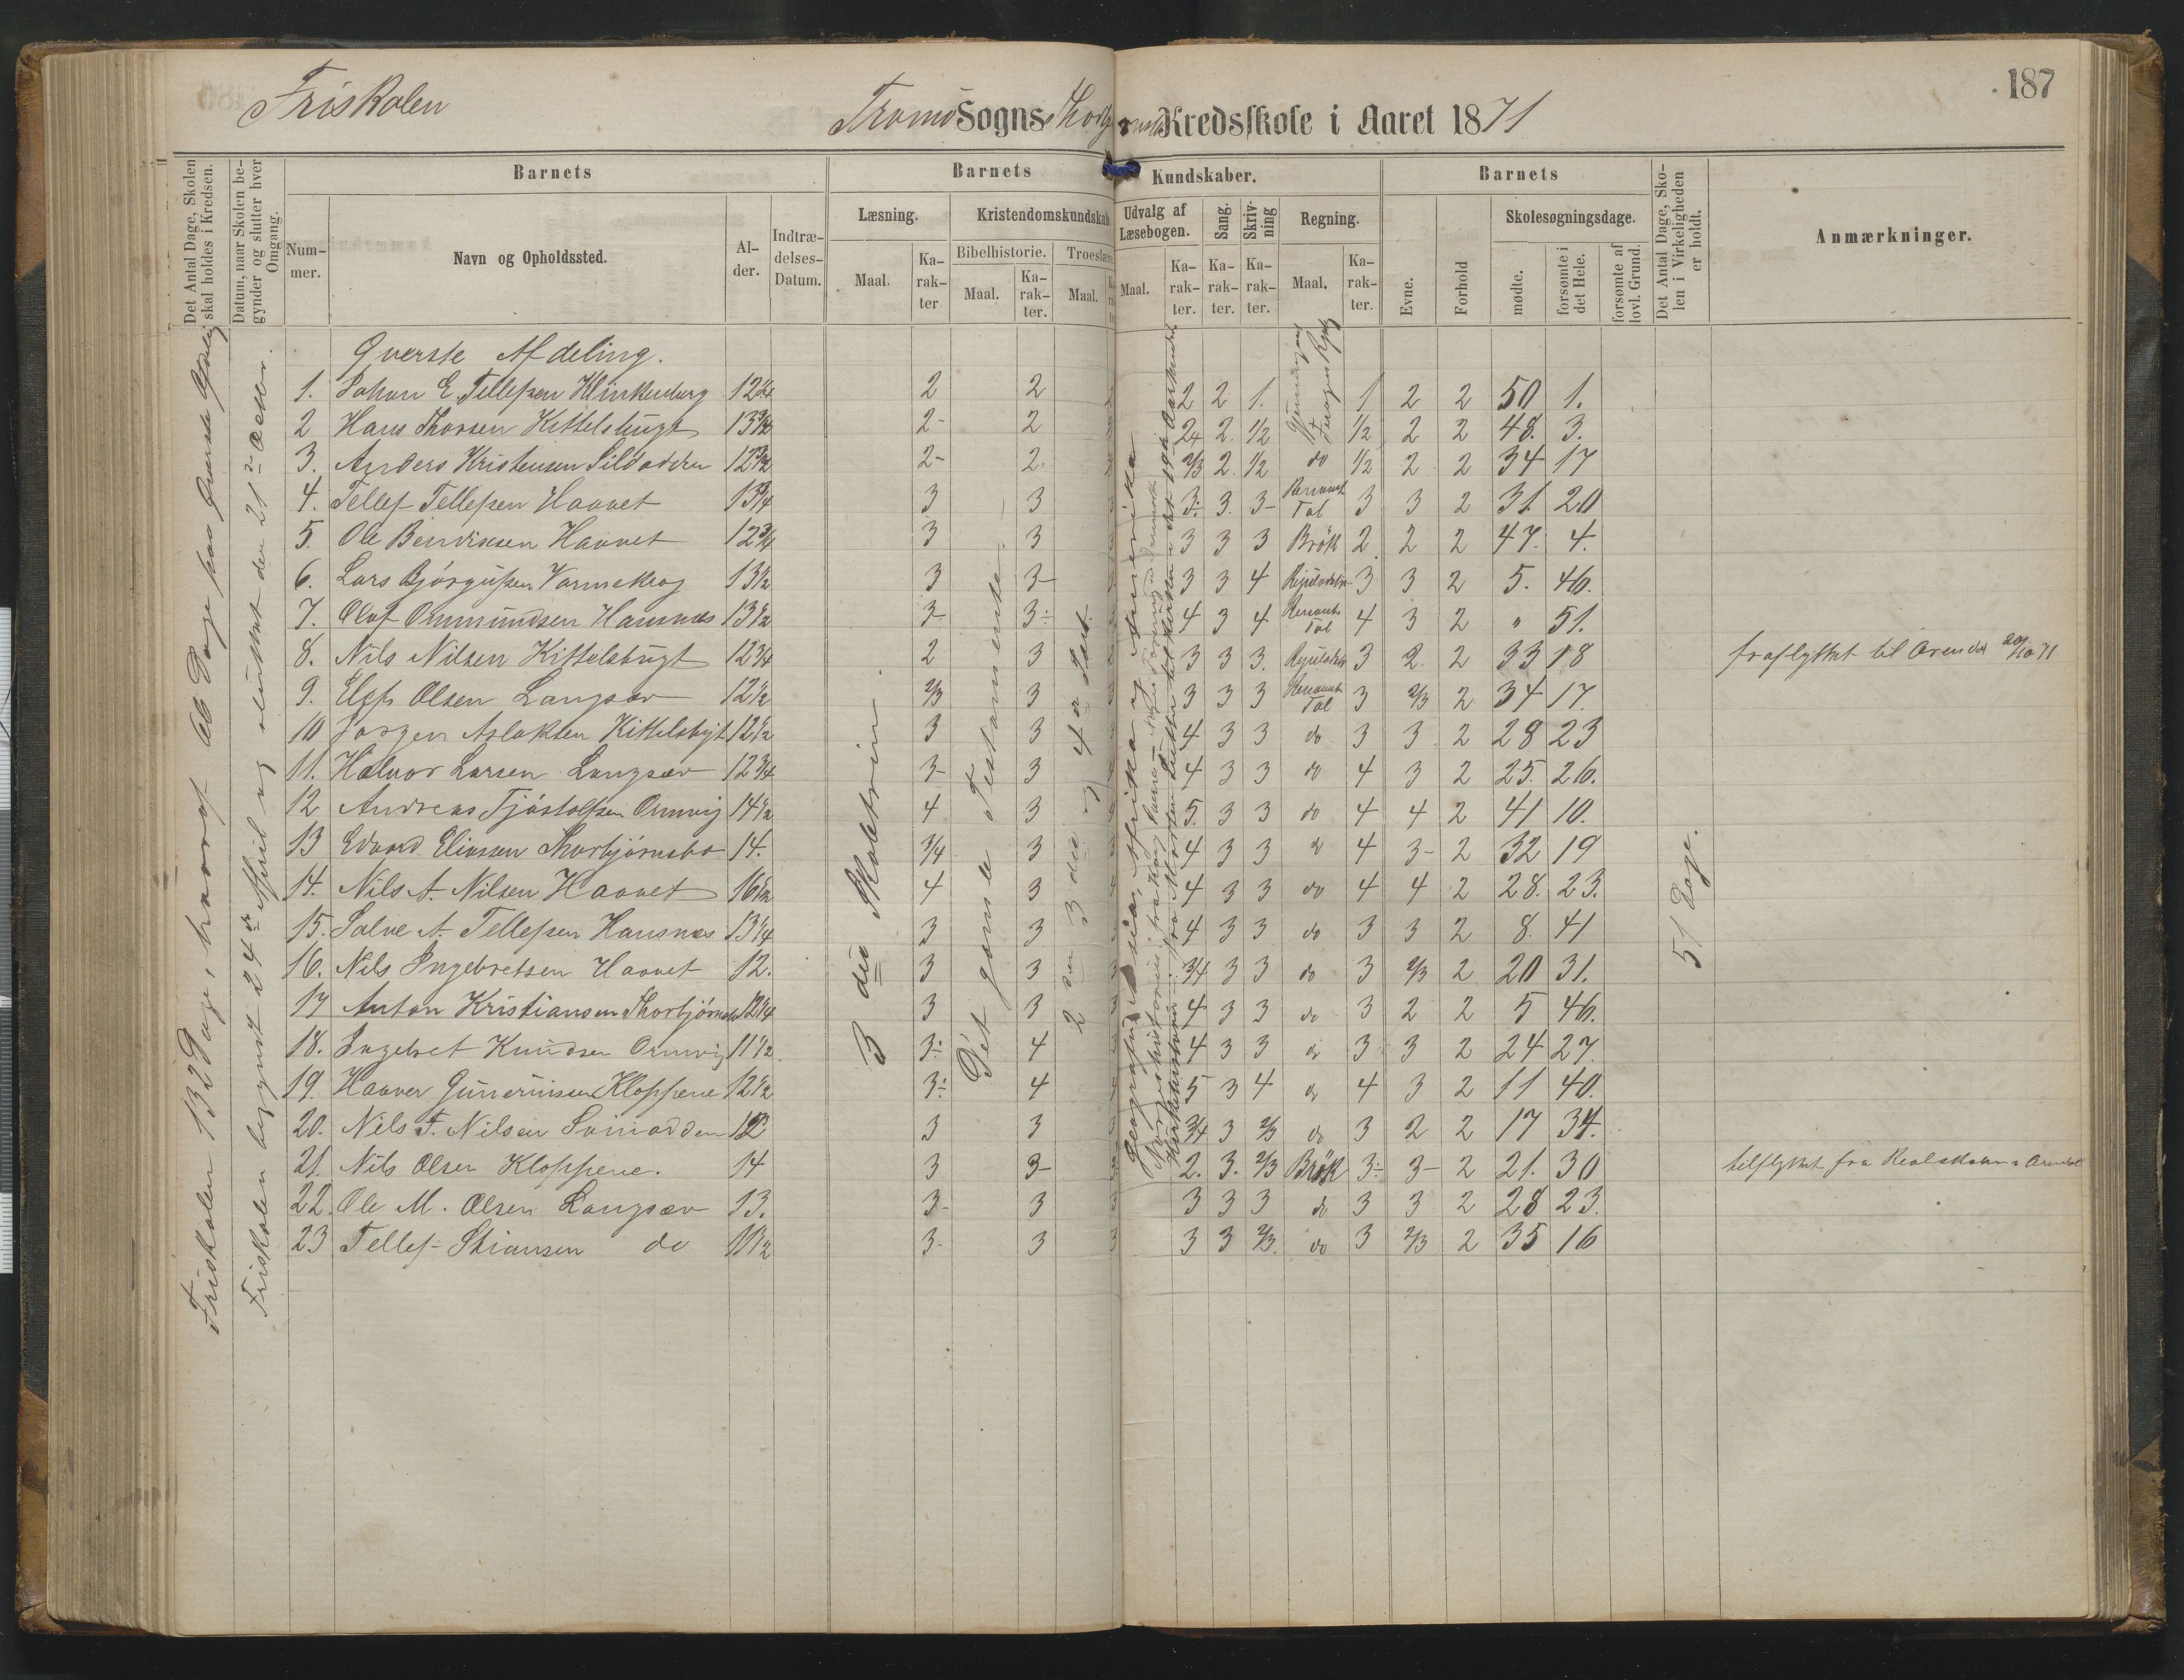 187
Friskolen
Tromö Sogns Kredsskole i Aaret 1871
Det Antal Dage, Skolen skal holdes i Kredsen.
Datum, naar Skolen begynder og slutter hver Omgang.
Barnets
Barnets Kundskaber.
Barnets
Det Antal Dage, Skolen i Virkeligheden er holdt.
Anmærkninger.
Nummer.
Navn og Opholdssted.
Alder.
Indtrædelses-Datum.
Læsning.
Kristendomskundskab
Udvalg af Læsebogen.
Sang.
Skrivning
Regning.
Evne.
Forhold
Skolesøgningsdage.
Bibelhistorie.
Troeslære
Maal.
Karakter
Maal.
Karakter.
Maal.
Maal.
Karakter.
Karakter.
Karakter.
Maal.
Karakter.
mødte.
forsømte i det Hele.
forsømte af lovl. Grund.
Friskolen 132 Dage, hvoraf
Friskolen begyndt 24de April og sluttet den 21de
3die Skoletrin.
Det gamle Testamente.
2den 3die og 4de Part.
51 Dage.
Øverste Afdeling.
1. Johan E. Tellefsen Klinkenberg 12 3/4 2 2 2 2 1. 1 2 2 50 1.
2 Hans Thorsen Kittelsbugt 2- 2 2. 1/2 1/2 2 2 48. 3.
3. Anders Kristensen 2- 2. 2/3 2. 1/2 do 1/2 2 2 34 17
4. Tellef Tellefsen Haavet 13 3/4 3 3 3. 3. 3- Tal 3 3 2 31. 20
5. Ole Bendixsen Haavet 12 3/4 3 3 3 3 3 Brök 2 2 2 47. 4.
6. Lars 13 1/2 3 3- 3 3 4 3 3 2 5. 46.
7. Olaf Ommundsen Hausnæs 13 1/2 3- 3÷ 4 3 4 Tal 4 3 2 " 51.
8. Nils Nilsen Kittelsbugt 12 3/4 2 3 3 3 3. 3 2. 2 33 18 fraflyttet til Arendal 20/10 71
9. Olsen Langsæv 12 1/2 2/3 3 3 3 3 Tal 3 2/3 2 34 17.
10 Jørgen Aslaksen Kittelsbugt 12 1/2 3 3 4 3 3 do 3 3 2 28 23
11. Halvor Larsen Langsæv 12 3/4 3- 3 4 3 3 do 4 3 2 25. 26.
12 Andreas Tjöstolfsen Ormvig 14 1/2 4 3 5. 3 3 do 4 4 2 41 10.
13 Edvard Eliassen Thorbjörnsbo 14. 3/4 3 4 3 3 do 4 3- 2 32 19
14. Nils A. Nilsen Haavet 4 3 4 3 3 do 4 4 2 28. 23.
15. Salve A. Tellefsen Hausnæs 13 1/4 3 3 4 3 3 do 3 3 2 8. 41
16. Nils Ingebretsen Haavet 12. 3 3 3/4 3 3 do 3 2/3 2 20 31.
17 Anton Kristiansen 12 1/4 3 3 4 3 3 do 3 2 2 5 46.
18. Ingebret Knudsen Ormvig 11 1/2 3÷ 4 4 3 3 do 3 3 2 24 27.
19. Haaver Guneriussen Kloppene 12 1/2 3÷ 4 5 3 4 do 4 3 2 11 40.
20. Nils F. Nilsen 3 3 3/4 3 2/3 do 3 2 2 17 34.
21. Nils Olsen Kloppene. 14 3 3- 2. 3. 2/3 Brök 3÷ 3- 2 21. 30 tilflyttet fra Realskolen i Arendal
22. Ole M. Olsen Langsæv 13. 3- 3 3 3 3 do 3 3 2 28 23.
23 Tellef Stiansen do 11 1/2 3- 3 3 3 2/3. do 3 2/3 2 35 16